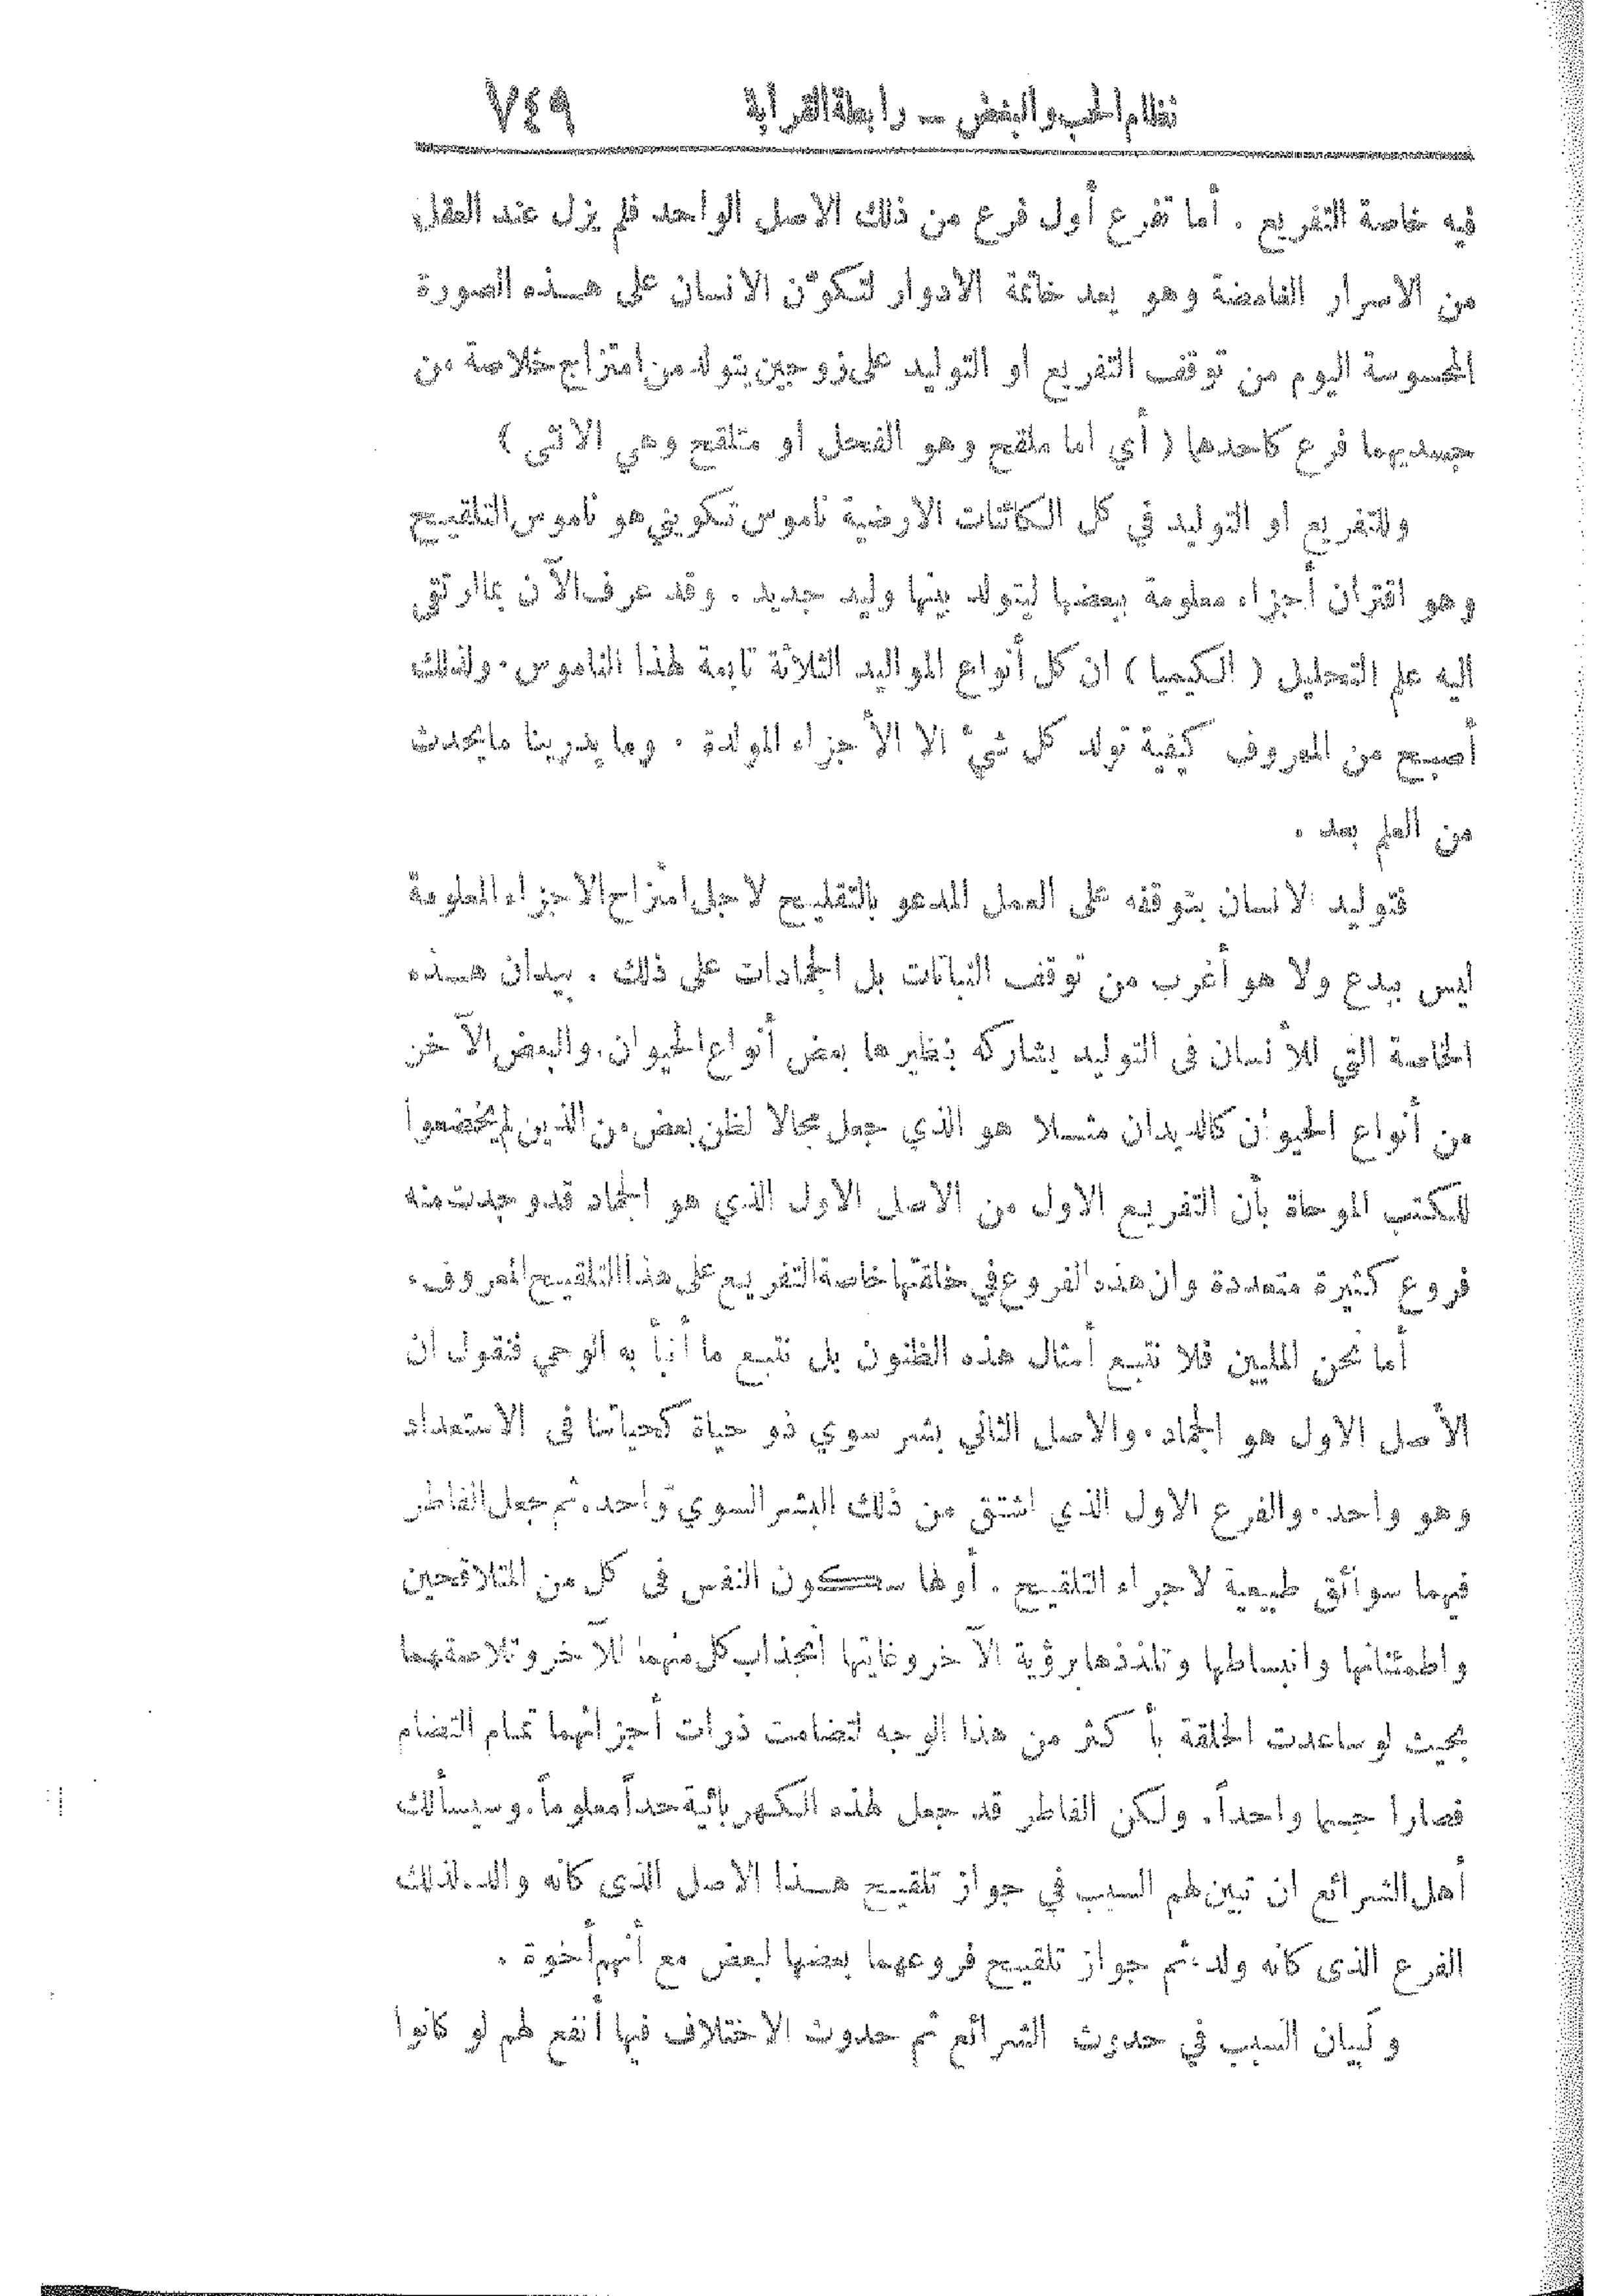 نظام الحب والبغض — رابطة القرابة ٧٤٩
فيه خاصة التفريع . أما تفرع أول فرع من ذلك الاصل الواحد فلم يزل عند العقل
من الاسرار الغامضة وهو بعد خاتمة الادوار لتكوّن الانسان على هــذه الصورة
المحسوسة اليوم من توقف التفريع او التوليد على زوجين يتولد من امتزاج خلاصة من
جسديهما فرع كاحدها ( أي اما ملقح وهو الفحل او متلقح وهي الانثى )
وللتفريع او التوليد في كل الكائنات الارضية ناموس تكويني هو ناموس التلقيح
وهو اقتران أجزاء معلومة ببعضها ليتولد بينها وليد جديد . وقد عرف الآن بما ارتقى
اليه علم التحليل ( الكيميا ) ان كل أنواع المواليد الثلاثة تابعة لهذا الناموس . ولذلك
أصبح من المعروف كيفية تولد كل شيء الا الأجزاء المولدة . وما يدرينا ما يحدث
من العلم بعد .
فتوليد الانسان بتوقفه على العمل المدعو بالتقليح لاجل امتزاج الاجزاء المعلومة
ليس ببدع ولا هو أغرب من توقف النباتات بل الجمادات على ذلك . بيدان هــذه
الخاصة التي للأنسان فى التوليد يشاركه بنظيرها بعض أنواع الحيوان . والبعض الآخر
من أنواع الحيوان كالديدان مثــلا هو الذي جعل مجالا لظن بعض من الذين لم يخضعوا
للكتب الموحاة بأن التفريع الاول من الاصل الاول الذي هو الجماد قد وجدت منه
فروع كثيرة متعددة وان هذه الفروع في خلقتها خاصة التفريع على هذا التلقيح المعروف .
أما نحن المليين فلا نتبع أمثال هذه الظنون بل نتبع ما أنبأ به الوحي فنقول ان
الأصل الاول هو الجماد . والاصل الثاني بشر سوي ذو حياة كحياتنا فى الاستعداد
وهو واحد . والفرع الاول الذي اشتق من ذلك البشر السوي واحد . ثم جعل الفاطر
فيهما سوائق طبيعية لاجراء التلقيح . أولها سكون النفس فى كل من المتلاقحين
واطمئنانها وانبساطها وتلذذها برؤية الآخر وغايتها انجذاب كل منهما للآخر وتلاصقهما
بحيث لو ساعدت الخلقة بأكثر من هذا الوجه لتضامت ذرات أجزائهما تمام التضام
فصارا جسما واحداً . ولكن الفاطر قد جعل لهذه الكهربائية حداً معلوماً . وسيسألك
أهل الشرائع ان تبين لهم السبب في جواز تلقيــح هــذا الاصل الذى كانه والد لذلك
الفرع الذى كانه ولد ، ثم جواز تلقيح فروعهما بعضها لبعض مع أنهم أخوة .
ولبيان السبب في حدوث الشرائع ثم حدوث الاختلاف فيها أنفع لهم لو كانوا